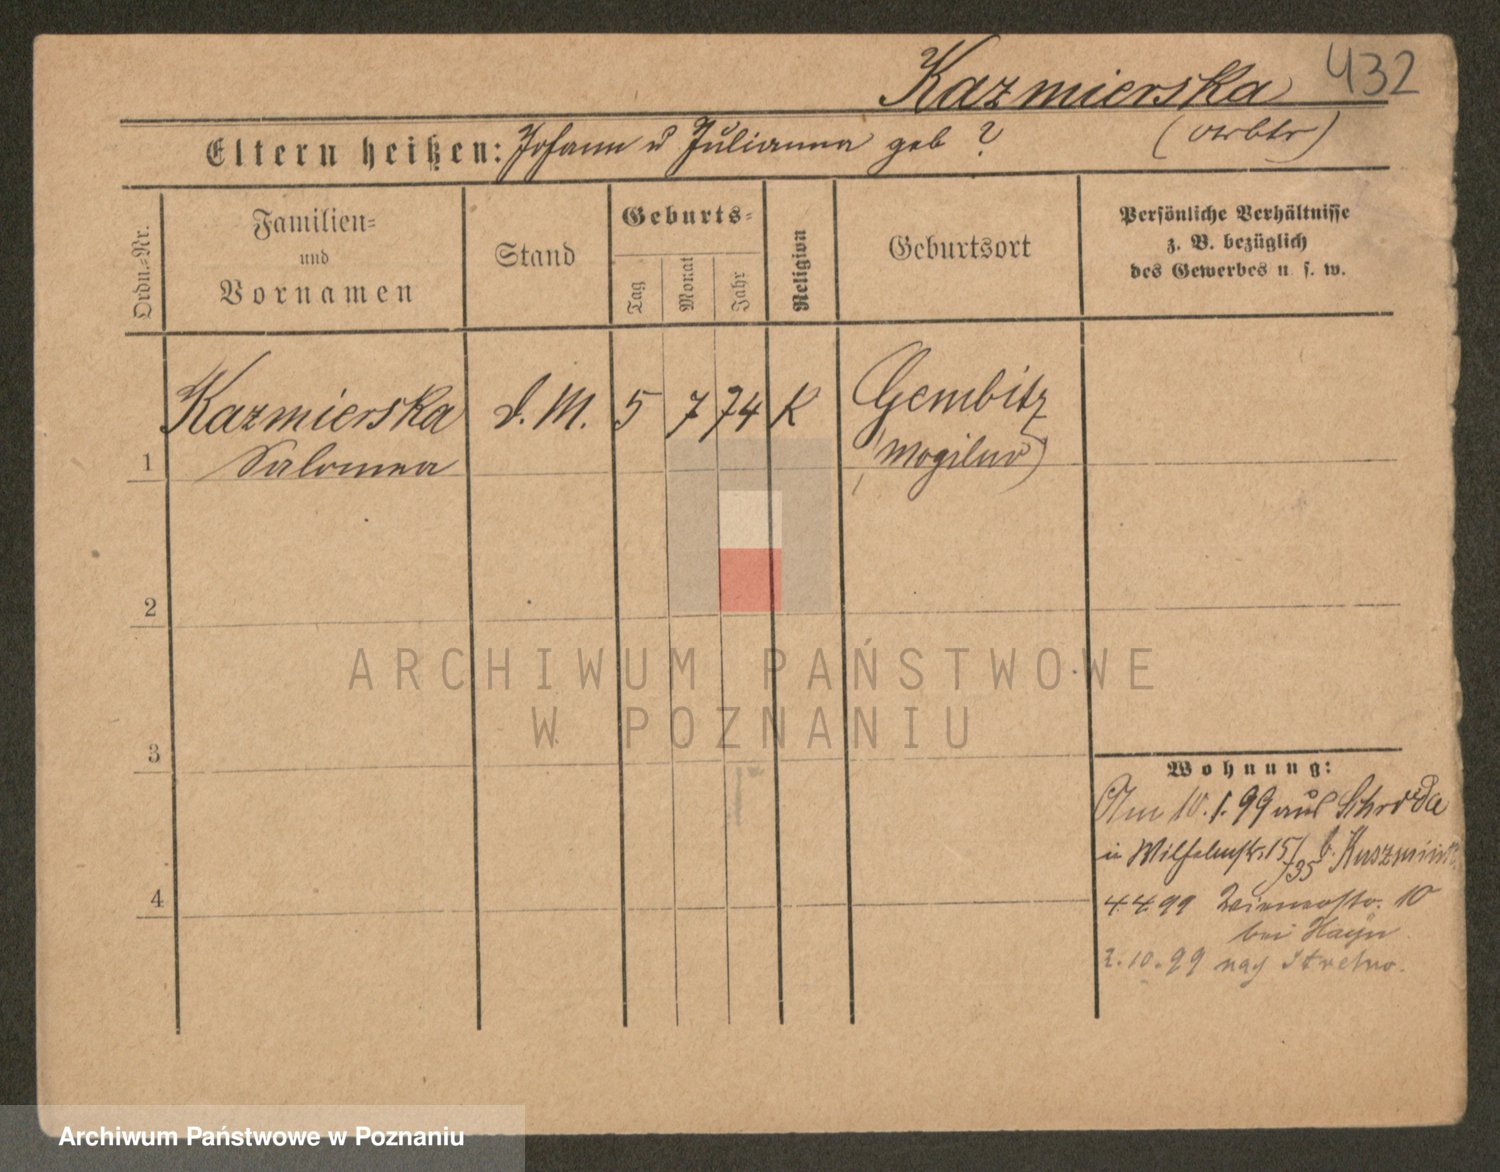 Kazmierska 432
Eltern heißen: Johann u Julianna geb ?
Ordn.-Nr.
Familien-
und
Vornamen
Stand
Geburts-
Tag
Monat
Jahr
Religion
Geburtsort
Persönliche Verhältnisse
z. B. bezüglich
des Gewerbes u. s. w.
Kazmierska d. M. 5 7 74 K Gembitz
1 Salomea (Mogilno)
2
3
4
ARCHIWUM PAŃSTWOWE
W POZNANIU
Wohnung:
Am 10.1.99 aus Schroda
in Wilhelmstr. 15/35 b.
4.4.99 10
bei Hayn
2.10.99 nach Strelno.
Archiwum Państwowe w Poznaniu